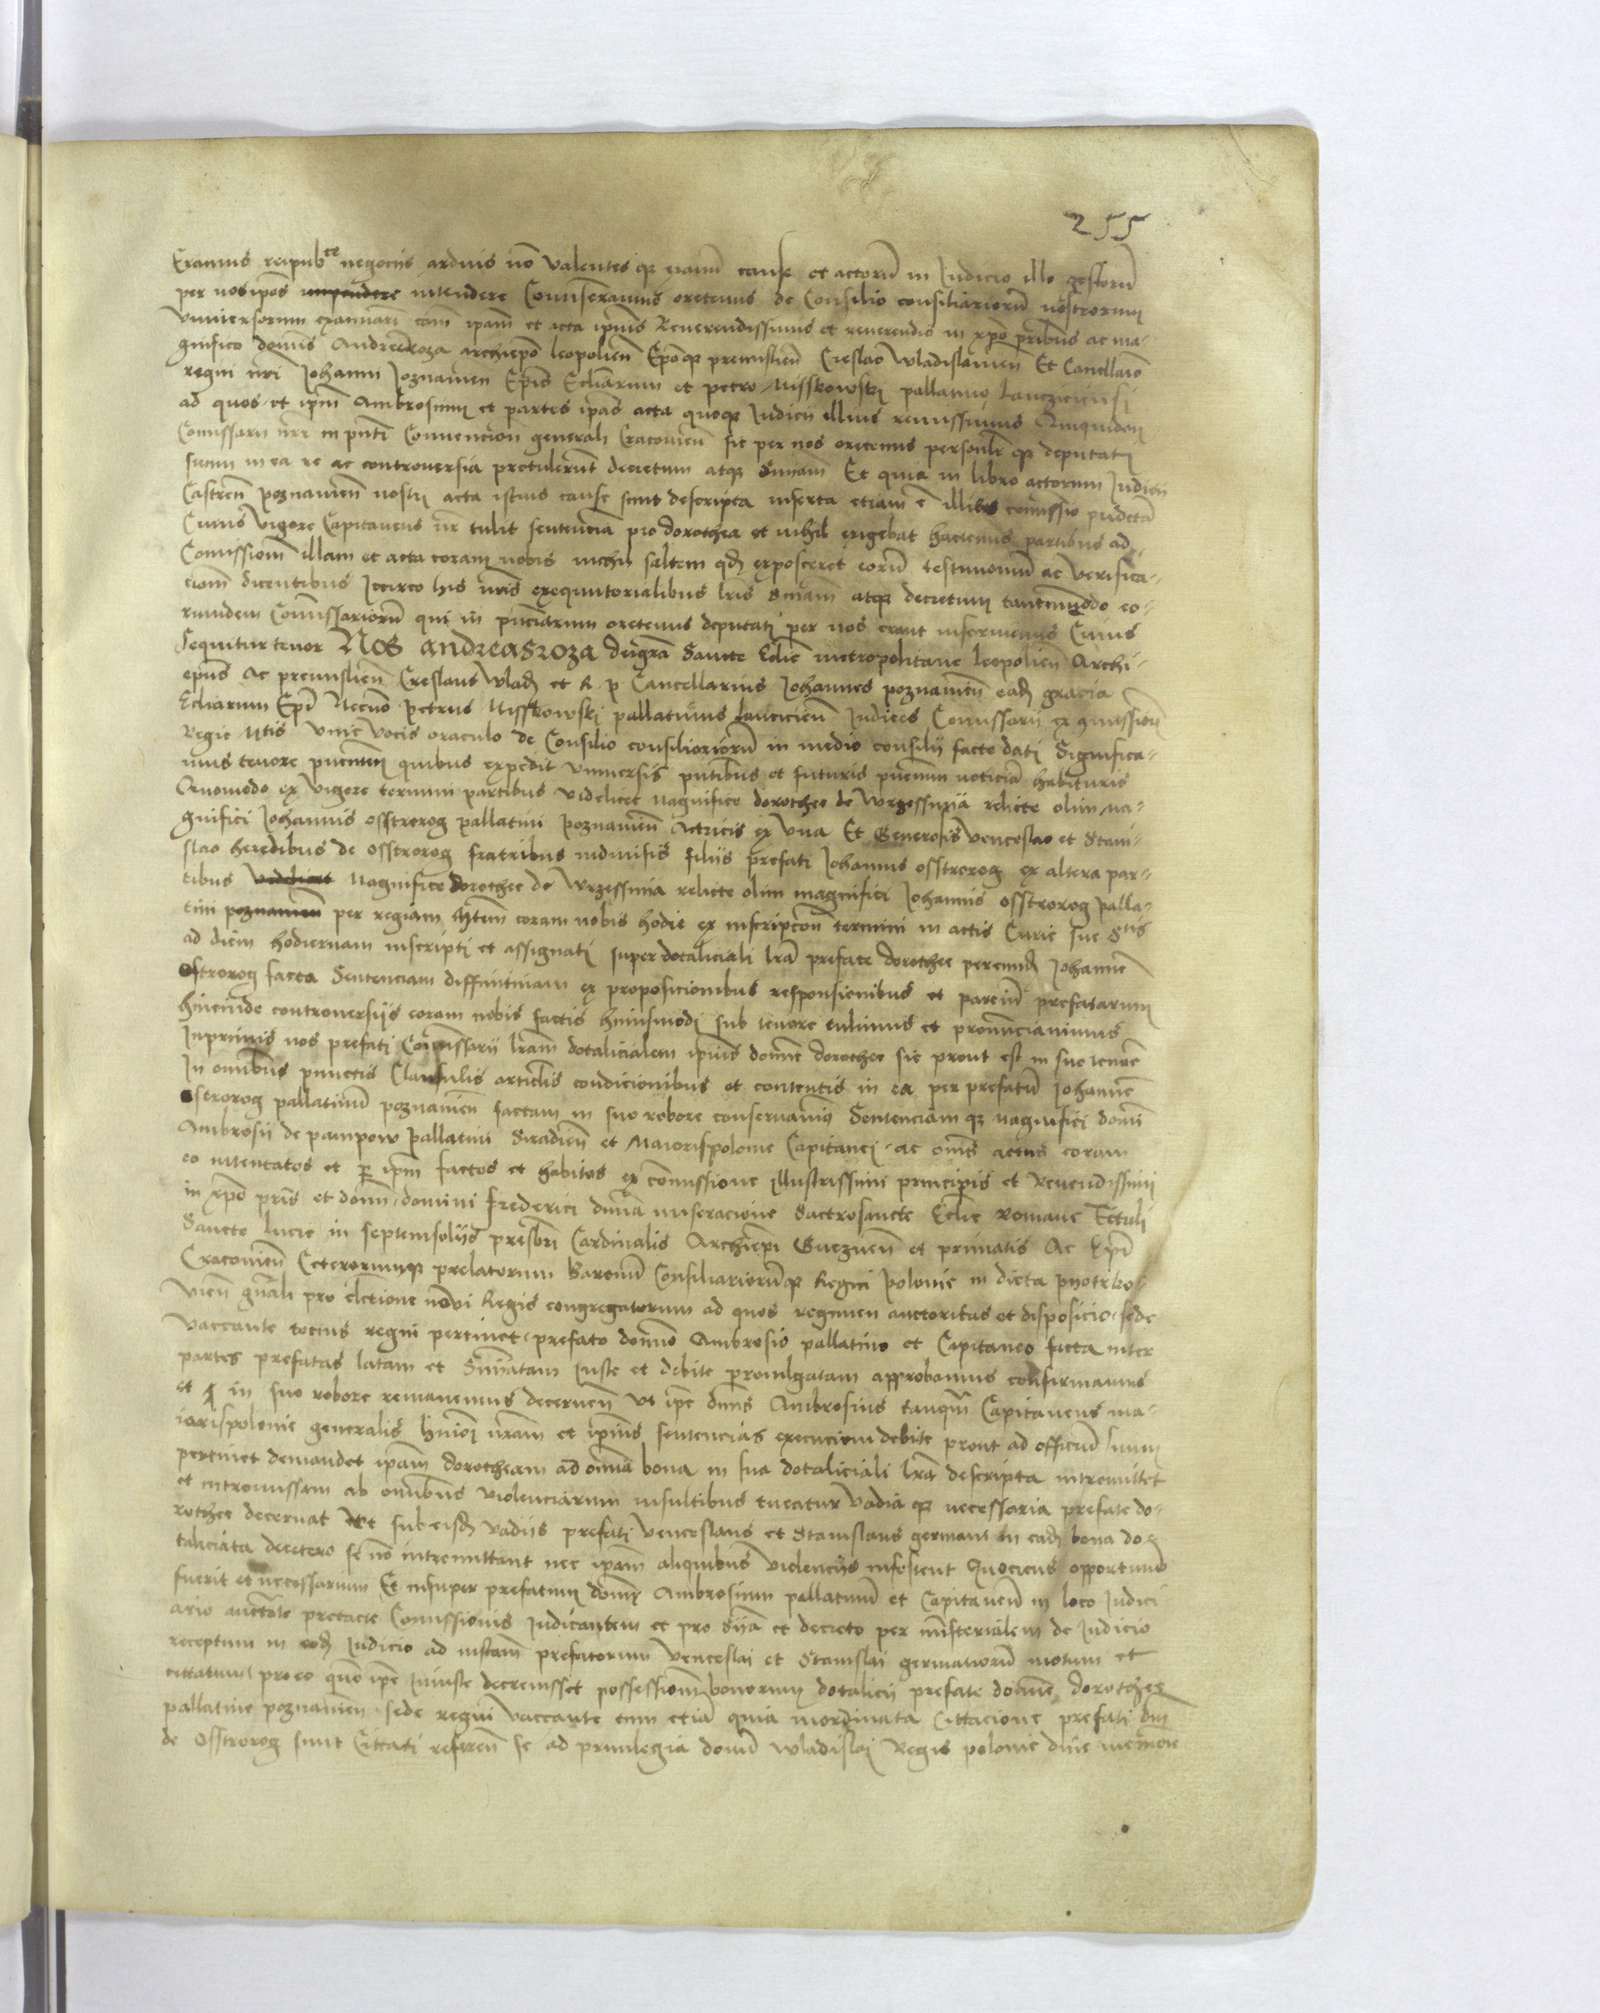 255
Eramus reipubce negociis arduis no valentes qz cause et actorum in Iudicio illo gestorum
per nosipos impendere intendere Comiseramus oretenus de Consilio consiliariorum nostrorum
vniuersorum examinari eam ipam et acta ipius Reuerendissimis et reuerendis in xpo pribus ac ma-
gnifico domis Andree roza archiepo leopolien Epoqz premislien Creslao wladislauien Et Cancellario
regni nri Iohanni poznanien Epis Ecliarum et petro Misskowski pallatino lancziciensi
ad quos et ipm Ambrosium et partes ipas acta quoqz Iudicii illius remissimus Quiquidem
Comissarii nri in pnti Conuencion generali Cracouien sic per nos oretenus personlr qz deputati
suum in ea re ac controuersia protulerunt decretum atqz sniam Et quia in libro actorum Iudicii
Castren poznanien nostri acta istius cause sunt descripta inserta etiam e illis comissio
Cuius vigore Capitaneus nr tulit sentencia pro dorothea et nihil exigebat hactenus partibus ad
Comissionem illam et acta coram nobis nichil saltem qd exposceret eorum testimonium ac verifica-
cionem dicentibus Iccirco his nris exequutorialibus lris sniam atqz decretum tantummodo eo-
rundem Comissariorum qui in oretenus deputati per nos erant inseruimus Cuius
sequitur tenor Nos andreas roza dei gra Sancte Eclie metropolitane leopolien Archi-
epus Ac premislien Creslaus wlad et R p Cancellarius Iohannes poznanien ead gracia
Ecliarum Epi Necno petrus Misskowski pallatinus lancicien Iudices Comissarii ex comissione
Regie Mtis viue vocis oraculo de Consilio consiliariorum in medio consilii facto dati Significa-
mus tenore pntium quibus expedit vniuersis pntibus et futuris pntium noticia habituris
Quomodo ex vigore termini partibus videlicet Magnifice dorothee de wrzessnia relicte olim ma-
gnifici Iohannis osstrorog pallatini poznanien Actricis ex vna Et Generosis venceslao et Stani-
slao heredibus de osstrorog fratribus indiuisis filiis prefati Iohannis osstrorog ex altera par-
tibus videlicet Magnifice dorothee de wrzessnia relicte olim magnifici Iohannis osstrorog palla-
tini poznanien per regiam Mtem coram nobis hodie ex inscripcione termini in actis Curie sue Stis
ad diem hodiernam inscripti et assignati super dotaliciali lra prefate dorothee per eund Iohannem
ostrorog facta Sentenciam diffinitiuam ex proposicionibus responsionibus et parcium prefatarum
hincinde controuersiis coram nobis factis huiusmodi sub tenore tulimus et pronunciauimus
Inprimis nos prefati Comissarii lram dotalicialem ipius domne dorothee sic prout est in suo tenore
In omnibus punctis Clausulis articulis condicionibus et contentis in ea per prefatum Iohannem
ostrorog pallatinum poznanien factam in suo robore conseruamus Sentenciam qz magnifici domi
Ambrosii de pampow pallatini Siradien et Maiorispolonie Capitanei ac omes actus coram
eo intentatos et per ipm factos et habitos ex comissione illustrissimi principis et Reuerendissimi
in xpo pris et domi domini frederici diuina miseracione Sacrosancte Eclie romane Tituli
Sancte lucie in septemsoliis presbri Cardinalis Archiepi Gneznen et primatis Ac Epi
Cracouien Ceterorumqz prelatorum Baronum Consiliariorumqz Regni polonie in dieta pyotrko-
uien gnali pro electione noui Regis congregatorum ad quos regimen auctoritas et disposicio sede
vaccante tocius regni pertinet prefato domo Ambrosio pallatino et Capitaneo facta inter
partes prefatas latam et sniatam iuste et debite promulgatam approbamus confirmamus
et in suo robore remanemus decernen vt ipe dnus Ambrosius tanqm Capitaneus ma-
iorispolonie generalis huiusmodi nram et ipius sentencias execucioni debite prout ad officium suum
pertinet demandet ipam dorotheam ad omia bona in sua dotaliciali lra descripta intromittet
et intromissam ab omnibus violenciarum insultibus tueatur vadia qz necessaria prefate do-
rothee decernat Et sub eisd vadiis prefati venceslaus et Stanislaus germani in ead bona do-
taliciata decetero se no intromittant nec ipam aliquibus violenciis infestent Quociens opportunum
fuerit et necessarium Et insuper prefatum domi Ambrosium pallatinum et Capitaneum in loco Iudici
ario auctate pretacte Comissionis Iudicantem et pro snia et decreto per ministerialem de Iudicio
receptum in eod Iudicio ad instam prefatorum venceslai et Stanislai germanorum motum et
cittatum pro eo quo ipe iniuste decreuisset possessionem bonorum dotalicii prefate domne dorothee
pallatine poznanien sede regni vaccante cum etia quia inordinata Cittacione prefati dni
de osstrorog sunt Cittati referen se ad priuilegia domi wladislai Regis polonie diue memorie